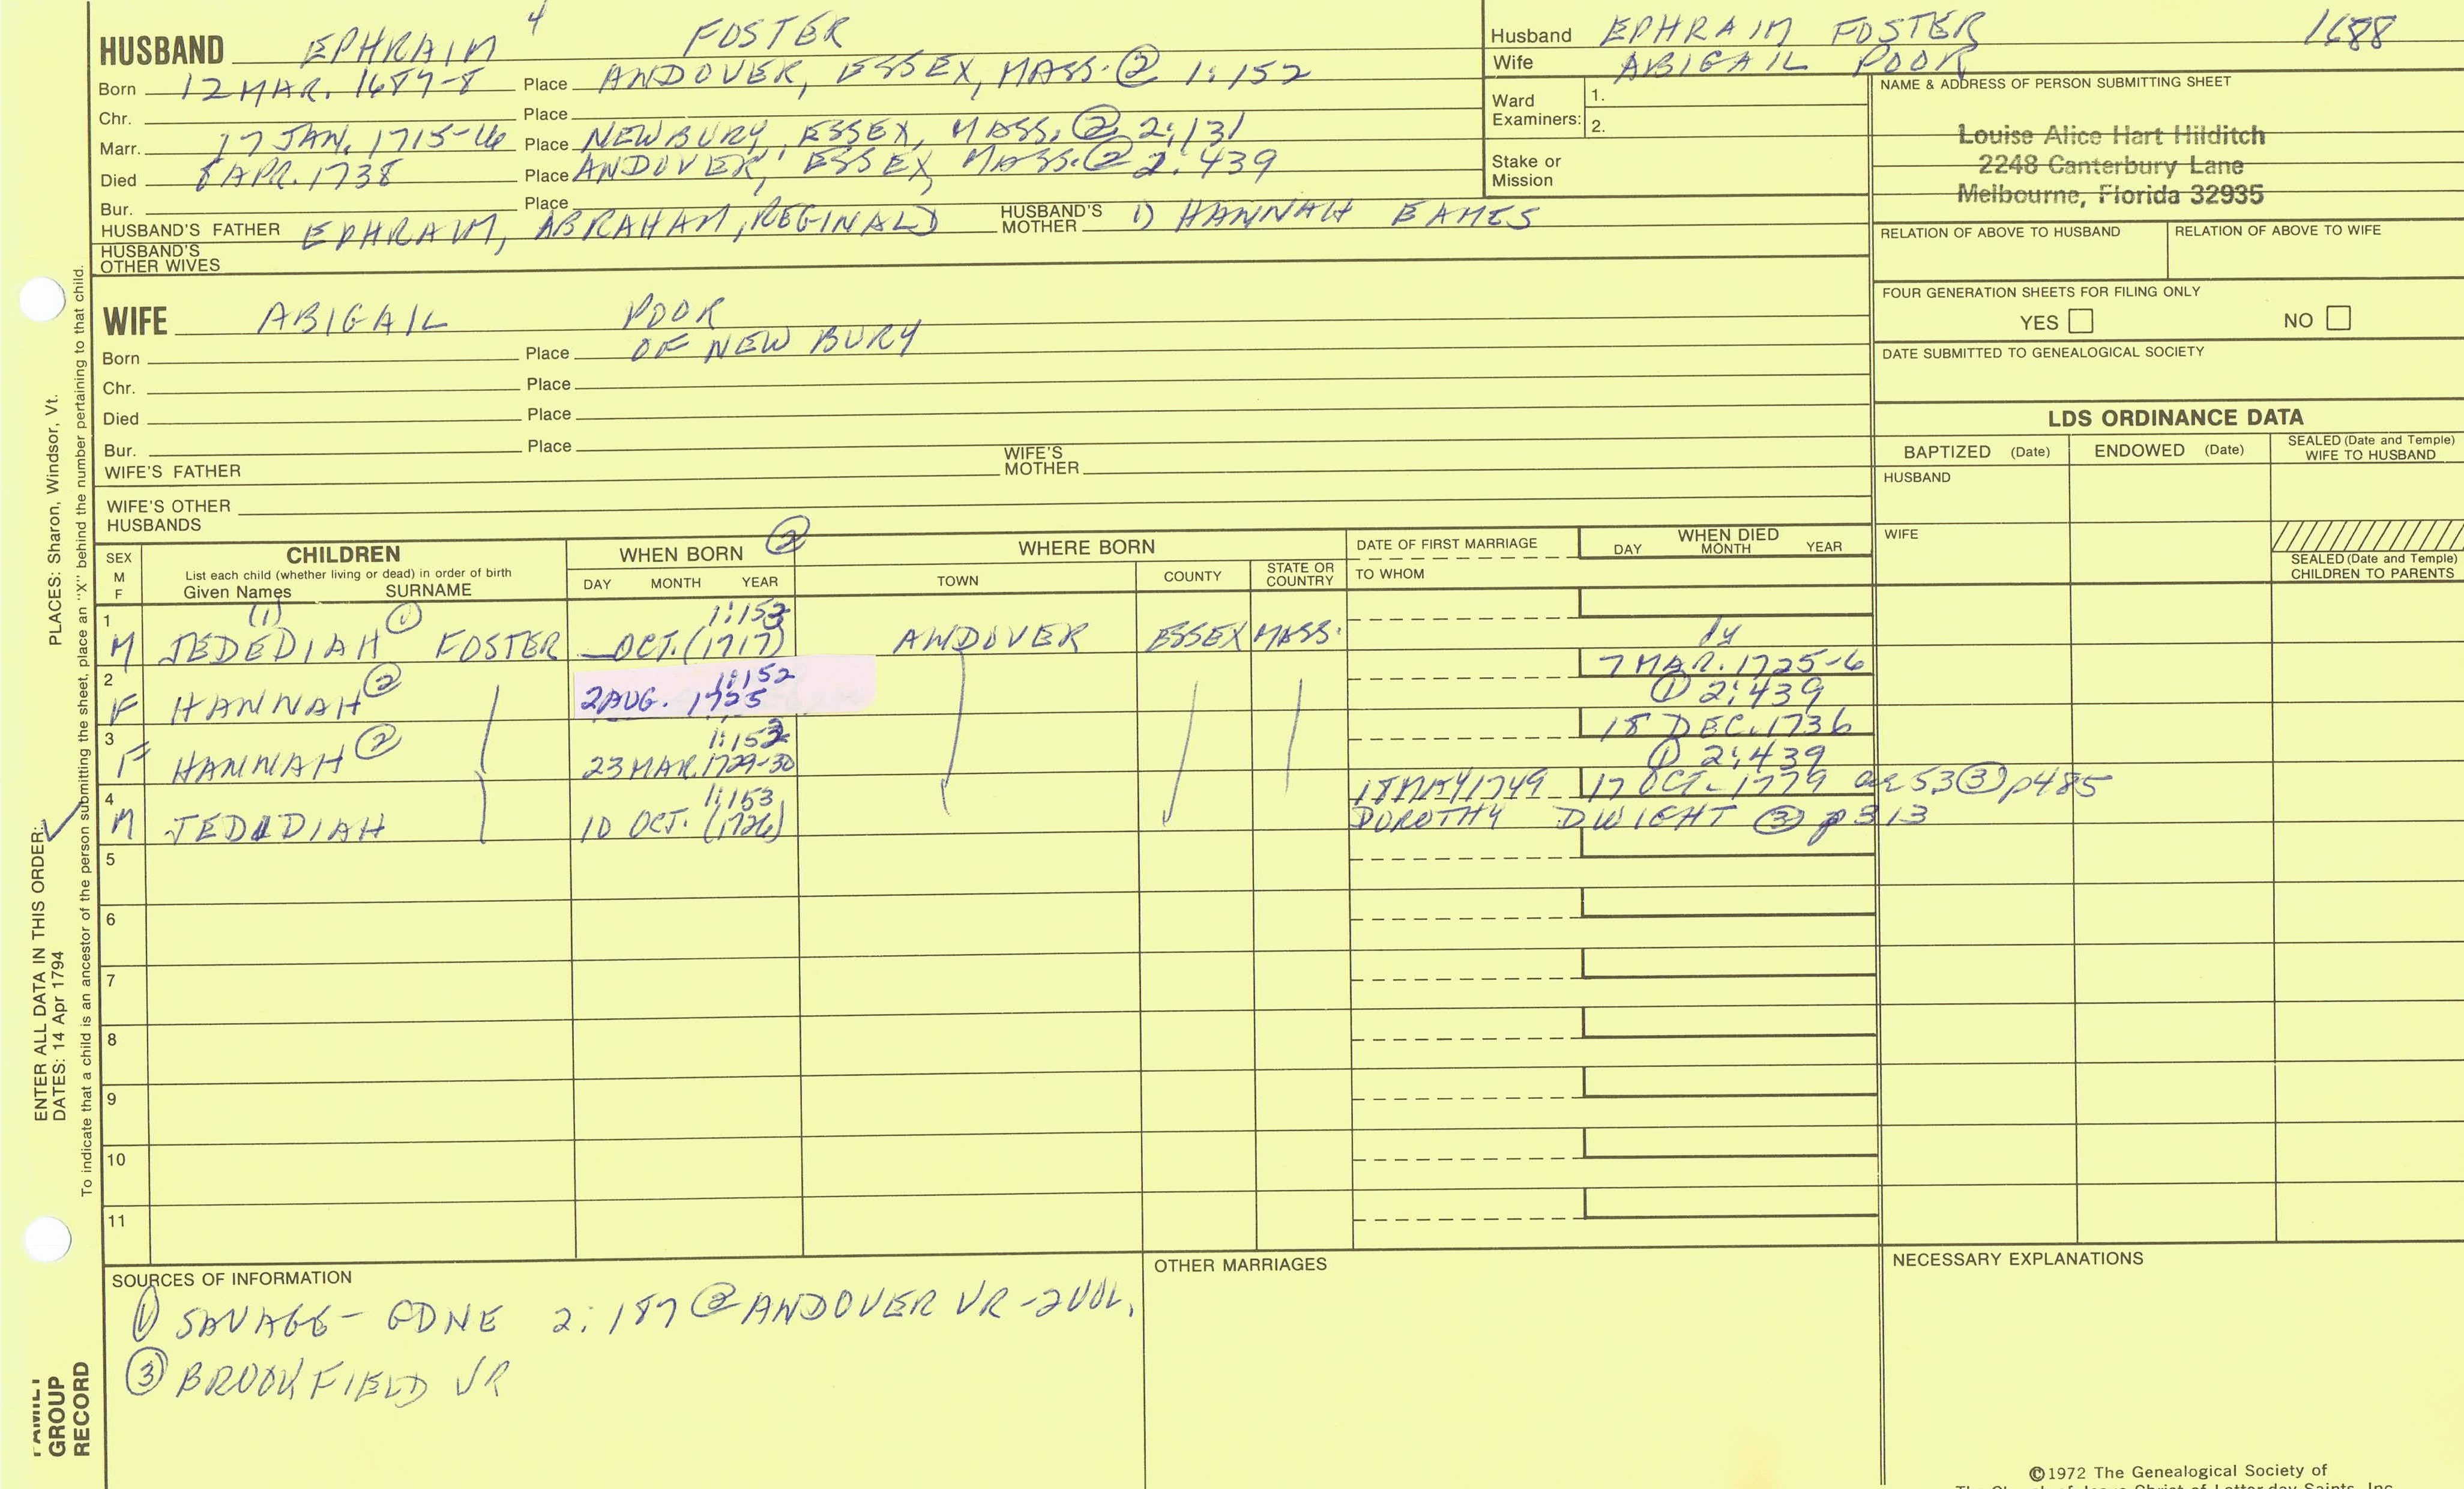 HUSBAND EPHRAIM 4 FOSTER
Born 12 MAR. 1687-8 Place ANDOVER, ESSEX, MASS. @ 1:152
Chr. Place
Marr. 17 JAN. 1715-16 Place NEWBURY, ESSEX, MASS. @ 2:131
Died 8 APR. 1738 Place ANDOVER, ESSEX, MASS. @ 2:439
Bur. Place
HUSBAND'S FATHER EPHRAIM, ABRAHAM, REGINALD HUSBAND'S MOTHER 1) HANNAH EAMES
HUSBAND'S OTHER WIVES
Husband EPHRAIM FOSTER 1688
Wife ABIGAIL POOR
Ward Examiners: 1.
2.
Stake or Mission
NAME & ADDRESS OF PERSON SUBMITTING SHEET
Louise Alice Hart Hilditch
2248 Canterbury Lane
Melbourne, Florida 32935
RELATION OF ABOVE TO HUSBAND RELATION OF ABOVE TO WIFE
FOUR GENERATION SHEETS FOR FILING ONLY
YES NO
DATE SUBMITTED TO GENEALOGICAL SOCIETY
WIFE ABIGAIL POOR
Born Place OF NEWBURY
Chr. Place
Died Place
Bur. Place
WIFE'S FATHER WIFE'S MOTHER
WIFE'S OTHER HUSBANDS
LDS ORDINANCE DATA
BAPTIZED (Date) ENDOWED (Date) SEALED (Date and Temple) WIFE TO HUSBAND
HUSBAND
WIFE
SEALED (Date and Temple) CHILDREN TO PARENTS
SEX M F CHILDREN WHEN BORN ② WHERE BORN DATE OF FIRST MARRIAGE WHEN DIED
List each child (whether living or dead) in order of birth
Given Names SURNAME DAY MONTH YEAR TOWN COUNTY STATE OR COUNTRY TO WHOM DAY MONTH YEAR
1 (1) ① 1:153
M JEDEDIAH FOSTER OCT. (1717) ANDOVER ESSEX MASS. dy
2 1:152 7 MAR. 1725-6
F HANNAH ② 2 AUG. 1725 ① 2:439
3 1:152 18 DEC. 1736
F HANNAH ② 23 MAR. 1729-30 ① 2:439
4 1:153 18 MAY 1749 17 OCT. 1779 ae 53 ③ p485
M JEDIDIAH 10 OCT. (1726) DOROTHY DWIGHT ③ p 313
5
6
7
8
9
10
11
SOURCES OF INFORMATION
① SAVAGE - GDNE 2:187 ② ANDOVER VR - 2 VOL.
③ BROOKFIELD VR
OTHER MARRIAGES
NECESSARY EXPLANATIONS
©1972 The Genealogical Society of
The Church of Jesus Christ of Latter-day Saints, Inc.
PLACES: Sharon, Windsor, Vt.
To indicate that a child is an ancestor of the person submitting the sheet, place an "X" behind the number pertaining to that child.
ENTER ALL DATA IN THIS ORDER:
DATES: 14 Apr 1794
FAMILY
GROUP
RECORD